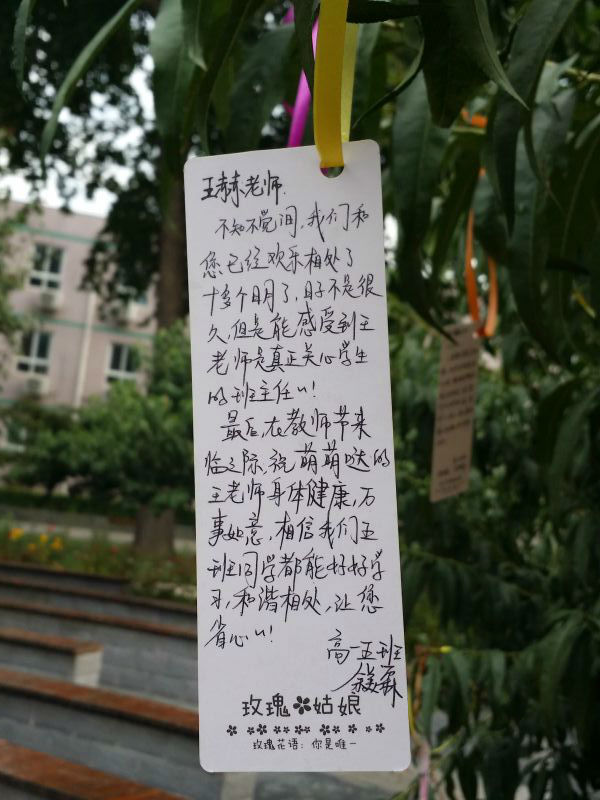 王赫老师.
不知不觉间,我们和
您已经欢乐相处了
十多个月了,日子不是很
久,但是能感受到王
老师是真正关心学生
的班主任!
最后,在教师节来
临之际,祝萌萌哒的
王老师身体健康,万
事如意,相信我们五
班同学都能好好学
习,和谐相处,让您
省心!
高一五班
玫瑰姑娘
玫瑰花语:你是唯一